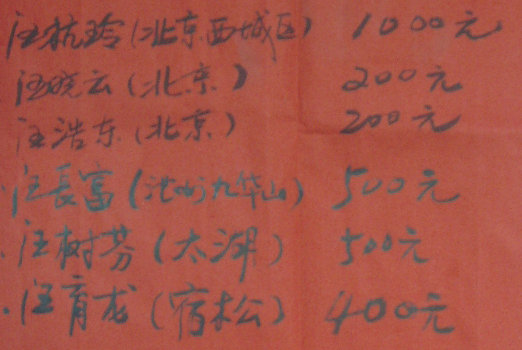 汪杭玲(北京西城区) 1000元
汪晓云(北京) 200元
汪浩东(北京) 200元
汪長富(池州九华山) 500元
汪树芬(太湖) 500元
汪育龙(宿松) 400元